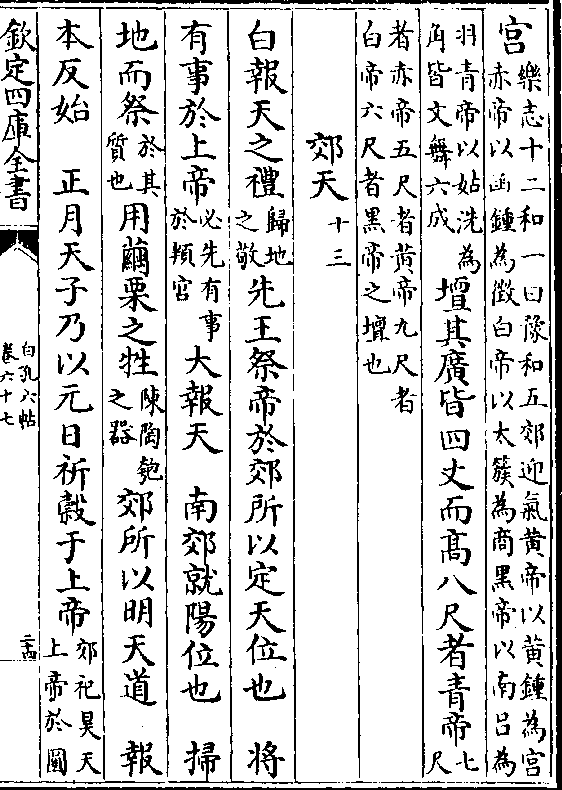 宮樂志十二和一曰豫和五郊迎氣黄帝以黄鍾為宮
赤帝以函鍾為徴白帝以太簇為商黑帝以南吕為
羽青帝以姑洗為
角皆文舞六成壇其廣皆四丈而髙八尺者青帝七尺
者赤帝五尺者黄帝九尺者
白帝六尺者黒帝之壇也
郊天十三
白報天之禮歸地
之敬先王祭帝於郊所以定天位也 将
有事於上帝必先有事
於頖宫大報天 南郊就陽位也 掃
地而祭於其
質也用繭栗之牲陳陶匏
之器郊所以明天道 報
本反始 正月天子乃以元日祈糓于上帝郊祀昊天
上帝於圜
欽定四庫全書
白孔六帖
卷六十七